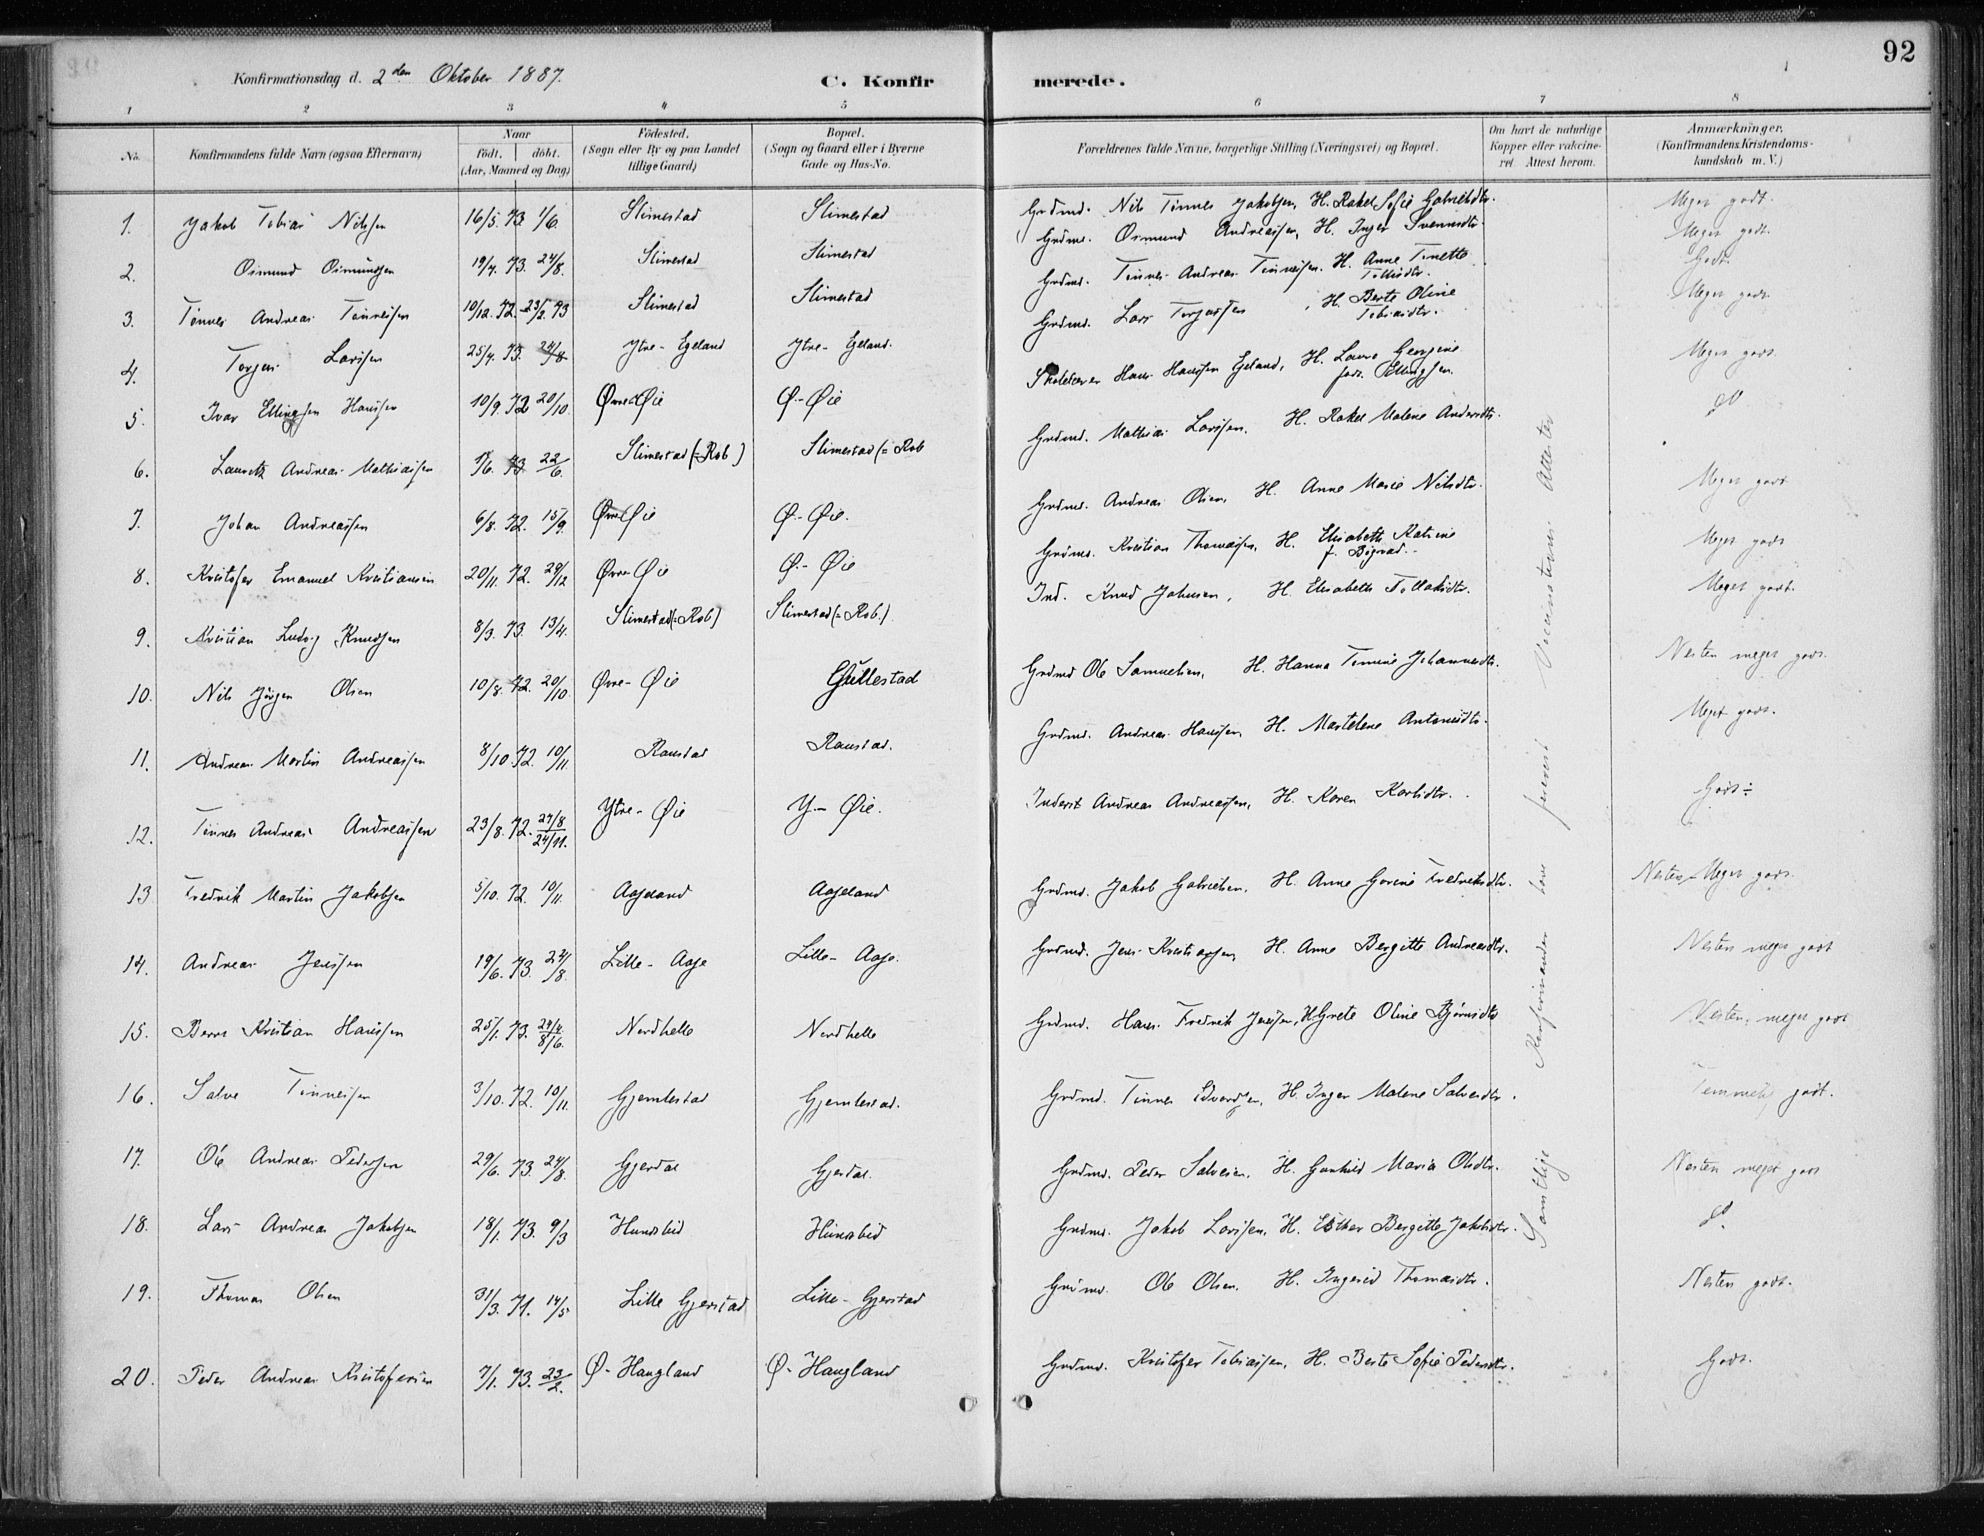 92
Konfirmationsdag d. 2den Oktober 1887.
C. Konfirmerede.
1 2 3 4 5 6 7 8
No. Konfirmandens fulde Navn (ogsaa Efternavn) Naar födt. döbt. (Aar, Maaned og Dag) Födested. (Sogn eller By og paa Landet tillige Gaard) Bopæl. (Sogn og Gaard eller i Byerne Gade og Hus-No. Forældrenes fulde Navne, borgerlige Stilling (Næringsvei) og Bopæl. Om havt de naturlige Kopper eller vaccineret. Attest herom. Anmærkninger. (Konfirmandens Kristendomskundskab m. V.)
1. Jakob Tobias Nilssen 16/5. 73 1/6. Slimestad Slimestad Grdmd. Nils Tönnes Jakobsen, H. Rakel Sofie Gabrielsdtr. Meget godt.
2. Osmund Osmundsen 19/7. 73. 24/8. Slimestad Slimestad Grdmd. Osmund Andreassen, H. Inger Svennsdtr. Meget godt.
3. Tönnes Andreas Tönnessen 10/12. 72. 23/2. 73 Slimestad Slimestad Grdmd. Tönnes Andreas Tönnessen. H. Anne Tonette Godt.
4. Torger Larssen 25/7. 73. 24/8. Ytre-Egeland Ytre-Egeland. Grdmd. Lars Torgersen, H. Berte Oline Tobiasdtr. Meget godt.
5. Ivar Ellingsen Hanssen 10/9. 72 20/10 Øvre Øie Ø-Øie Skolelærer Hans Hanssen Egeland, H. Laura Georgine födt. Ellingsen. Meget godt.
6. Lauretz Andreas Mathiassen 1/6. 73. 22/6. Slimestad (=Rob) Slimestad (=Rob Grdmd. Mathias Larssen. H. Rakel Malene Andersdtr. do
7. Johan Andreassen 6/8. 72. 15/9. Øvre Øie Ø-Øie. Grdmd. Andreas Olsen, H. Anne Marie Nilsdtr. Meget godt
8. Kristofer Emanuel Kristiansen 20/11. 72. 29/12 Øvre-Øie Ø-Øie Grdmd. Kristian Thomassen, H. Elisabeth Katrine Meget godt
9. Kristian Ludvig Knudsen 8/3. 73. 13/4. Slimestad (=Rob) Slimestad (=Rob.) Ind. Knud Johnsen, H. Elisabeth Tollaksdtr. Meget godt.
10. Nils Jörgen Olsen 10/8. 72. 20/10. Øvre-Øie Gullestad Grdmd Ole Samuelsen, H. Hanna Tomine Johannesdtr. Nesten meget godt.
11. Andreas Martin Andreassen 8/10 72. 10/11. Ranstad Ranstad. Grdmd. Andreas Hanssen, H. Martelene Antonisdtr. Meget godt.
12. Tönnes Andreas Andreassen 23/8. 72. 29/8. 24/11. Ytre-Øie Y-Øie. Inderst Andreas Andreassen, H. Karen Karlsdtr. Godt ÷
13 Fredrik Martin Jakobsen 5/10. 72. 10/11. Aageland Aageland Grdmd. Jakob Gabrielsen. H. Anne Gurine Fredriksdtr. Nesten Meget godt.
14. Andreas Jenssen 19/6. 73. 24/8. Lille-Aage Lille-Aage. Grdmd. Jens Kristiansen, H. Anne Bergitte Andreasdtr. Nesten meget godt
15. Bernt Kristian Hanssen 25/1. 73. 24/4. 8/6. Nordhelle Nordhelle Grdmd. Hans Fredrik Jenssen, H. Grete Oline Bjørnsdtr Nesten meget godt
16. Salve Tönnessen 3/10. 72. 10/11. Gjemlestad Gjemlestad. Grdmd. Tönnes Edvardsen, H. Inger Malene Salvesdtr. Temmelig godt.
17. Ole Andreas Pedersen 29/6. 73. 24/8. Gjerdal Gjerdal. Grdmd. Peder Salvesen. H. Gunhild Maria Olsdtr. Nesten meget godt
18. Lars Andreas Jakobsen 18/1. 73. 9/3 Hunsbed Hunsbed Grdmd. Jakob Larssen, H. Esther Bergitte Jakobsdtr. do.
19. Thomas Olsen 31/3. 71. 14/5 Lille Gjerstad Lille-Gjerstad Grdmd. Ole Olsen. H. Ingerid Thomasdtr. Nesten godt.
20. Peder Andreas Kristofersen 7/1. 73. 23/2. Ø-Haugland Ø-Haugland Grdmd. Kristofer Tobiassen, H. Berte Sofie Pedersdtr. Godt.
Samtlige Konfirmander have leveret Vaccinations Attester